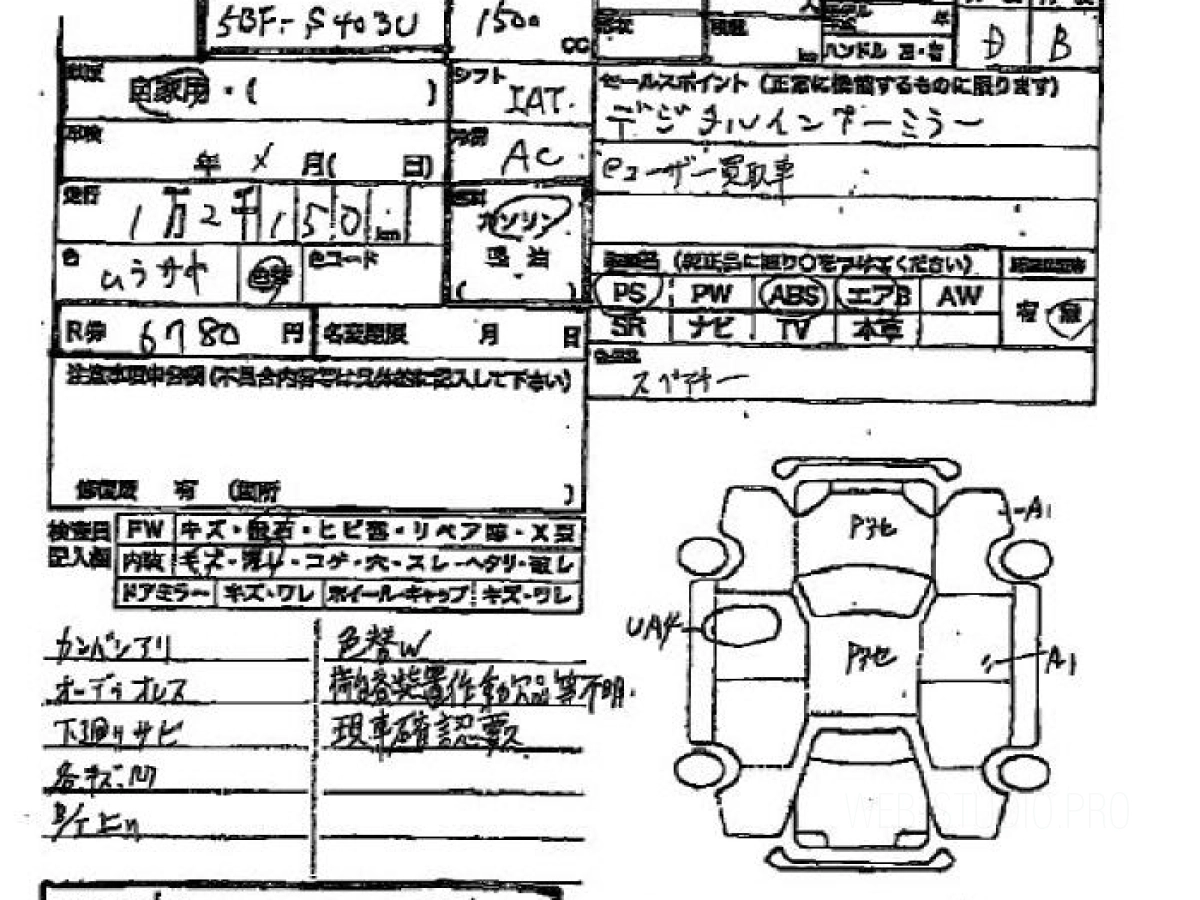 5BF-S403U
1500
CC
年
ハンドル 右・右
D
B
自家用・( )
シフト
IAT.
セールスポイント (正常に機能するものに限ります)
デジタルインナーミラー
車検
年 X 月( 日)
冷房
AC
eユーザー買取車
走行
1万2千150km
ガソリン
軽油
( )
色
ムラサキ
色替
色コード
(純正品に限り○をつけてください)
PS PW ABS エアB AW
有 無
SR ナビ TV 本革
R券
6780円
名変期限 月 日
スペアキー
注意事項申告欄(不具合内容等は具体的に記入して下さい)
修復歴 有 (箇所 )
検査員
記入欄
FW キズ・飛石・ヒビ・リペア
内装 キズ・汚れ・コゲ・穴・スレ・ヘタリ・破レ
ドアミラー キズ・ワレ ホイール・キャップ キズ・ワレ
カンバンアリ
オーディオレス
下廻りサビ
各キズ凹
色替W
撒巻装置作動欠品等不明.
現車確認要
A1
Pアセ
UA4
Pアセ
A1
WEB-STUDIO.PRO